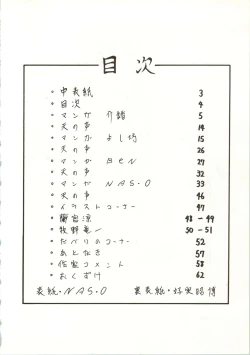 目次
・中表紙 3
・目次 4
・マンガ 介錯 5
・天の声 14
・マンガ よし坊 15
・天の声 26
・マンガ BEN 27
・天の声 32
・マンガ NAS・O 33
・天の声 46
・イラストコーナー 47
・蘭宮涼 48-49
・牧野竜一 50-51
・だべりのコーナー 52
・あとがき 57
・作家コメント 58
・おくずけ 62
表紙・NAS・O 裏表紙・好実昭博